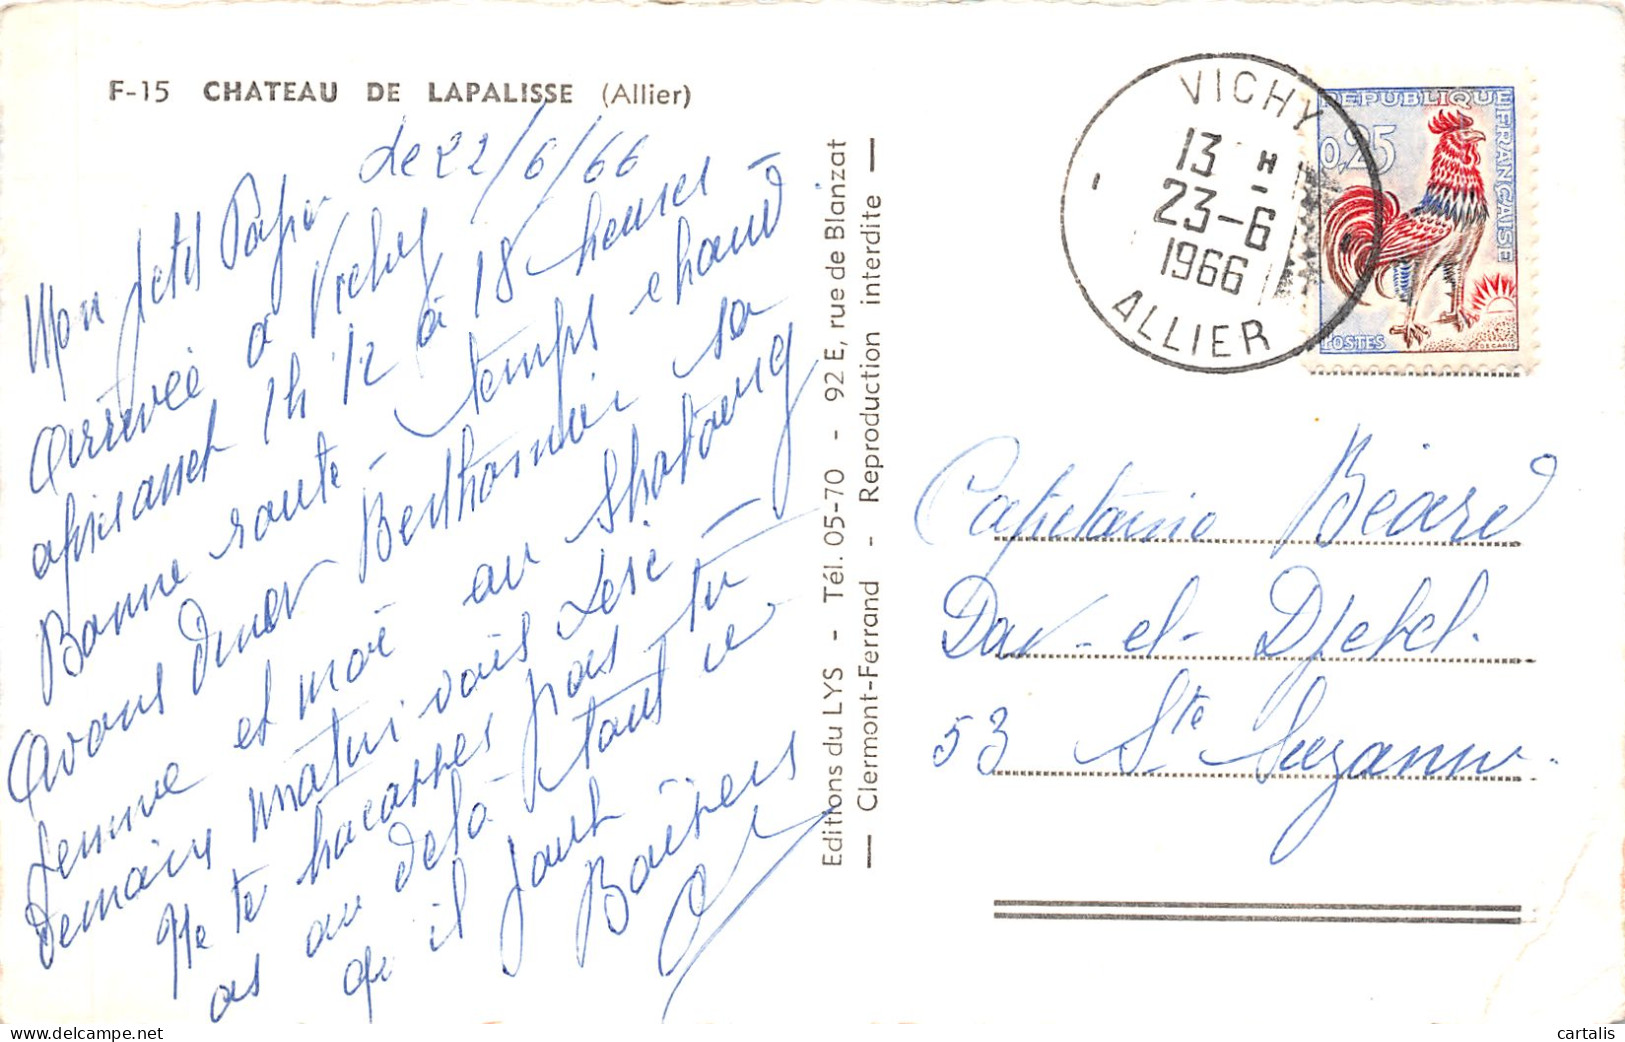 F-15 CHATEAU DE LAPALISSE (Allier)
le 22/6/66
Mon petit Papa
Arrivée à Vichy
apirasset 1h 1/2 à 18 heures -
Bonne route - temps chaud
Avons diner Berthomier sa
femme et moi au
Demain matin vais
Ne te tracasses pas tu
as au delà - tout ce
qu'il faut
Baisers
Editions du LYS - Tél. 05-70 - 92 E, rue de Blanzat
— Clermont-Ferrand - Reproduction interdite —
VICHY
13 H
23-6
1966
ALLIER
REPUBLIQUE FRANÇAISE
0,25
POSTES
DECARIS
Capitaine Béard
Dar-el-Djebel.
53 Ste Suzanne.
cartalis